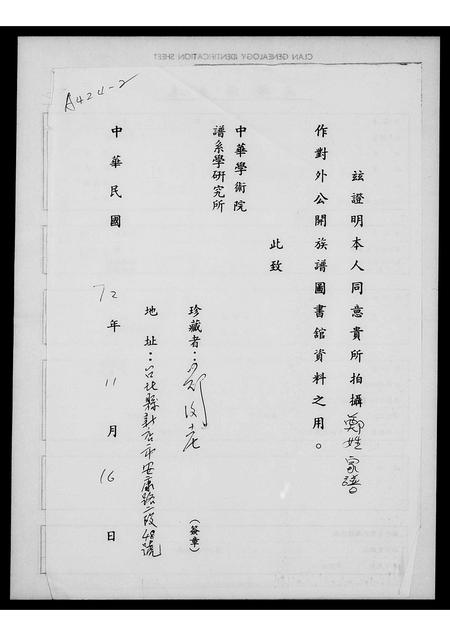 CLAN GENEALOGY IDENTIFICATION SHEET
A424-2
玆證明本人同意貴所拍攝鄭姓家譜
作對外公開族譜圖書館資料之用。
此致
中華學術院
譜系學研究所
珍藏者：鄭
(簽章)
地址：台北縣新店市安康路二段48號
中華民國72年11月16日